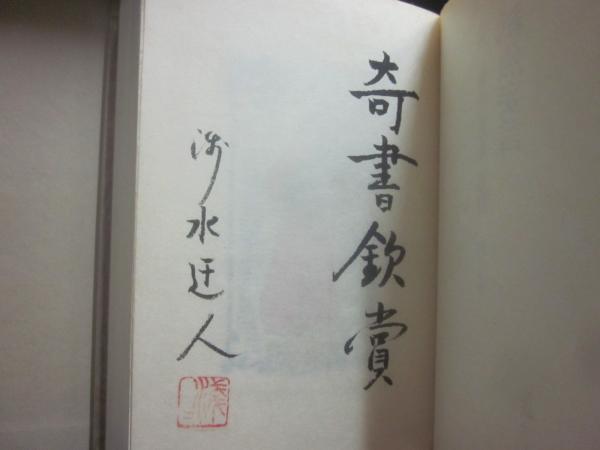 奇書欽賞
水迂人